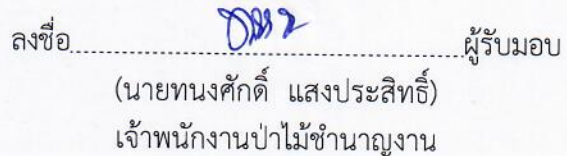 ลงชื่อ........................................................ผู้รับมอบ
(นายทนงศักดิ์ แสงประสิทธิ์)
เจ้าพนักงานป่าไม้ชำนาญงาน